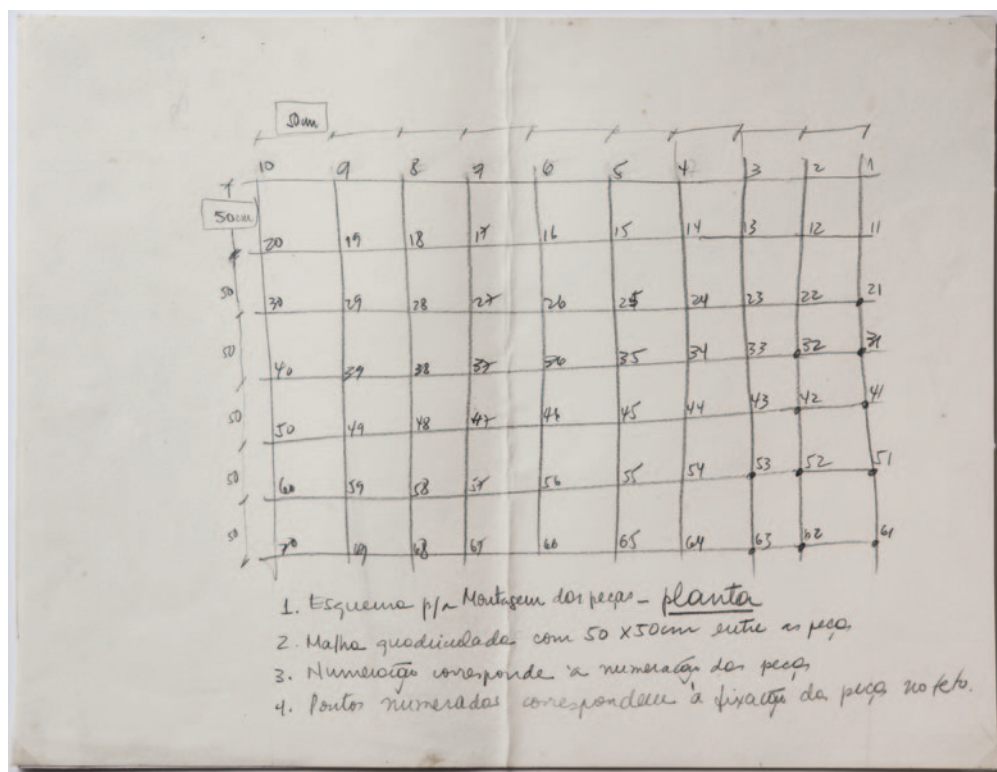 50cm
10 9 8 7 6 5 4 3 2 1
50cm
20 19 18 17 16 15 14 13 12 11
50 30 29 28 27 26 25 24 23 22 21
50 40 39 38 37 36 35 34 33 32 31
50 50 49 48 47 46 45 44 43 42 41
50 60 59 58 57 56 55 54 53 52 51
50 70 69 68 67 66 65 64 63 62 61
1. Esquema p/a Montagem das peças - planta
2. Malha quadriculada com 50 x 50cm entre as peças
3. Numeração corresponde a numeração das peças
4. Pontos numerados correspondem à fixação da peça no teto.